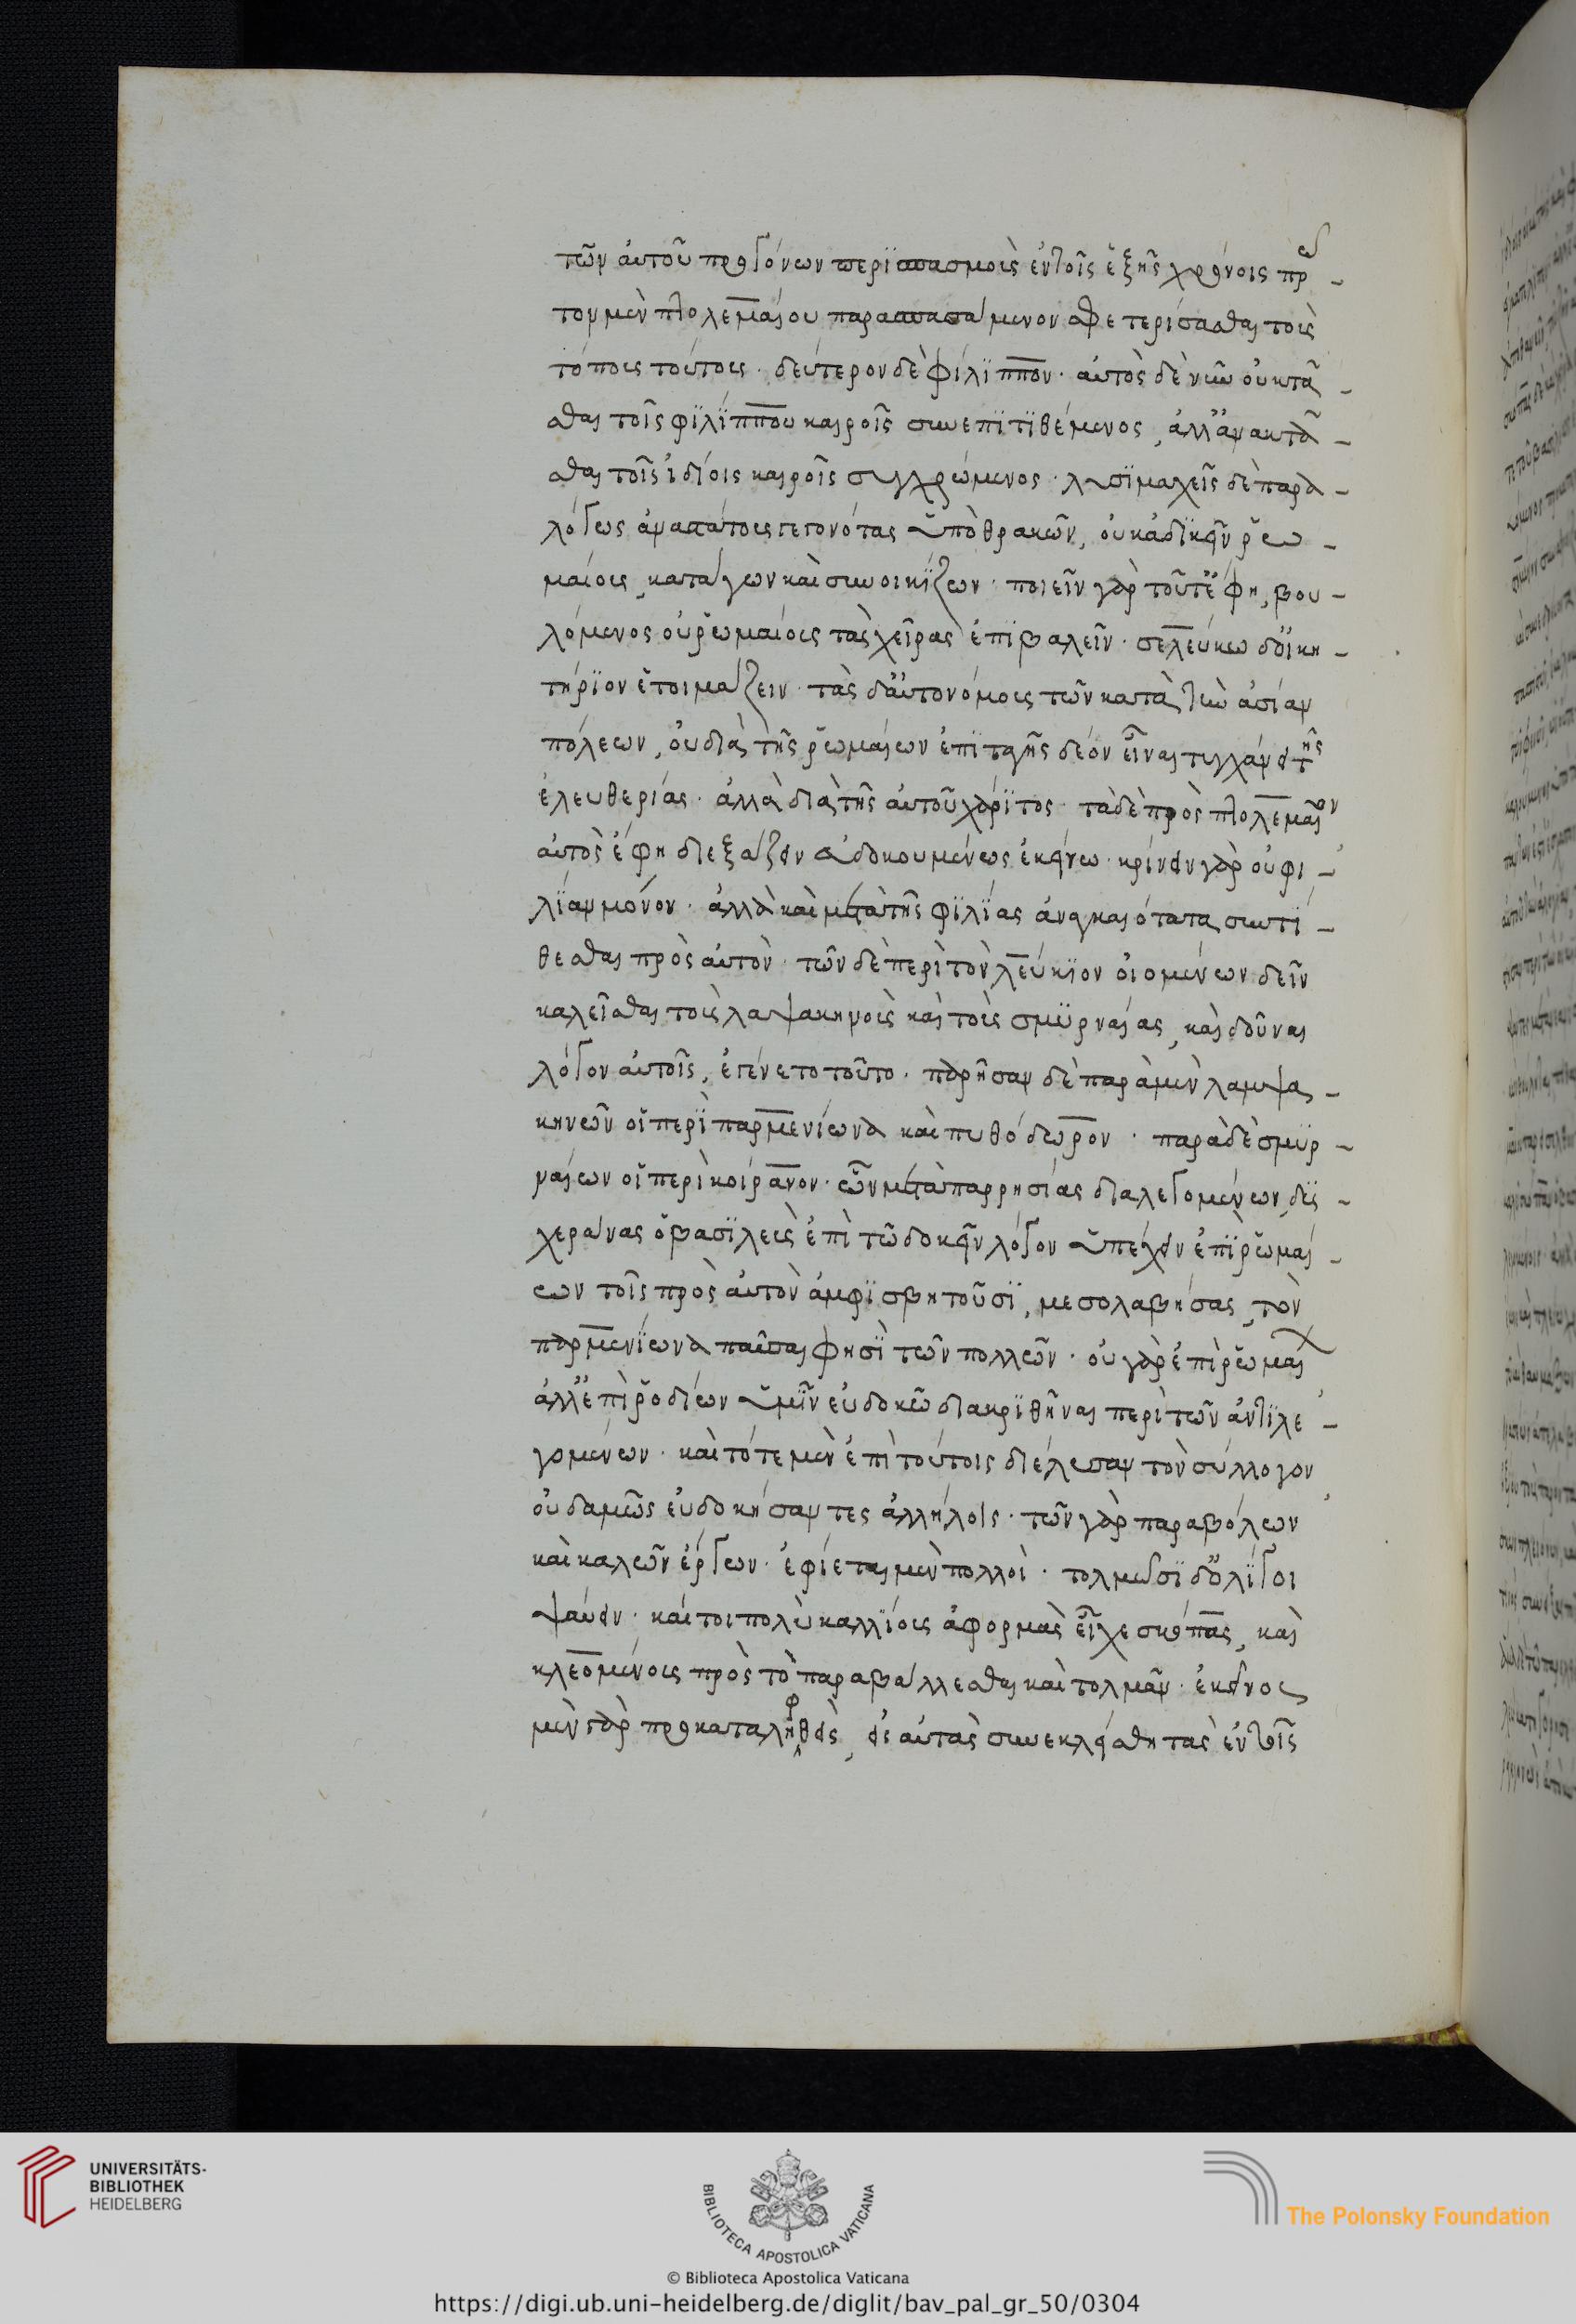 τῶν αὐτοῦ προγόνων περϊσπασμοὺς ἐν τοῖς ἑξῆς χρόνοις πρῶ-
τον μὲν πτολεμαίου παρασπασάμενον σφετερίσασθαι τοὺς
τόπους τούτους · δεύτερον δὲ φίλϊππον · αὐτὸς δὲ νῦν οὐ κτᾶ-
σθαι τοῖς φϊλίππου καιροῖς συνεπϊτϊθέμενος, ἀλλ' ἀνακτᾶ-
σθαι τοῖς ἰδίοις καιροῖς συγχρώμενος · λυσϊμαχεῖς δὲ παρα-
λόγως ἀναστάτους γεγονότας ὑπὸ θρακῶν, οὐκ ἀδϊκεῖν ῥω-
μαίους, κατάγων καὶ συνοικίζων · ποιεῖν γὰρ τοῦτ' ἔφη, βου-
λόμενος οὐ ῥωμαίοις τὰς χεῖρας ἐπϊβαλεῖν · σελεύκω δ' οἰκη-
τήρϊον ἑτοιμάζειν · τὰς δ' αὐτονόμους τῶν κατὰ τὴν ἀσίαν
πόλεων, οὐ διὰ τῆς ῥωμαίων ἐπϊταγῆς δέον εἶναι τυγχάνειν τῆς
ἐλευθερίας · ἀλλὰ διὰ τῆς αὐτοῦ χάρϊτος · τὰ δὲ πρὸς πτολεμαῖον
αὐτὸς ἔφη διεξάξειν εὐδοκουμένως ἐκείνω · κρίνειν γὰρ οὐ φι-
λϊαν μόνον · ἀλλὰ καὶ μετὰ τῆς φϊλϊας ἀναγκαιότατα συντί-
θεσθαι πρὸς αὐτὸν · τῶν δὲ περὶ τὸν λεύκϊον οἰομένων δεῖν
καλεῖσθαι τοὺς λαψακηνοὺς καὶ τοὺς σμϋρναίας, καὶ δοῦναι
λόγον αὐτοῖς, ἐγένετο τοῦτο · παρῆσαν δὲ παρὰ μὲν λαμψα-
κηνῶν οἱ περὶ παρμενίωνα καὶ πυθόδωρον · παρὰ δὲ σμϋρ-
ναίων οἱ περὶ κοίρανον · ὧν μετὰ παρρησίας διαλεγομένων, δϋς-
χεράνας ὁ βασϊλεὺς ἐπὶ τῶ δοκεῖν λόγον ὑπέχειν ἐπὶ ῥωμαί-
ων τοῖς πρὸς αὐτὸν ἀμφϊσβητοῦσϊ, μεσολαβήσας, τὸν
παρμενϊωνα παῦσαι φησὶ τῶν πολλῶν · οὐ γὰρ ἐπὶ ῥωμαί
ἀλλ' ἐπὶ ῥοδίων ὑμῖν εὐδοκῶ διακρϊθῆναι περὶ τῶν ἀντϊλε-
γομένων · καὶ τότε μὲν ἐπὶ τούτοις διέλυσαν τὸν σύλλογον
οὐδαμῶς εὐδοκήσαντες ἀλλήλοις · τῶν γὰρ παραβόλων
καὶ καλῶν ἔργων · ἐφίεται μὲν πολλοὶ · τολμῶσϊ δ' ὀλίγοι
ψαύειν · καίτοι πολὺ καλλϊους ἀφορμὰς εἶχε σκόπας, καὶ
κλεομένους πρὸς τὸ παραβάλλεσθαι καὶ τολμᾶν · ἐκεῖνος
μὲν γὰρ προκαταληφθεὶς, εἰς αὐτὰς συνεκλείσθη τὰς ἐν τοῖς
UNIVERSITÄTS-
BIBLIOTHEK
HEIDELBERG
BIBLIOTECA APOSTOLICA VATICANA
The Polonsky Foundation
© Biblioteca Apostolica Vaticana
https://digi.ub.uni-heidelberg.de/diglit/bav_pal_gr_50/0304